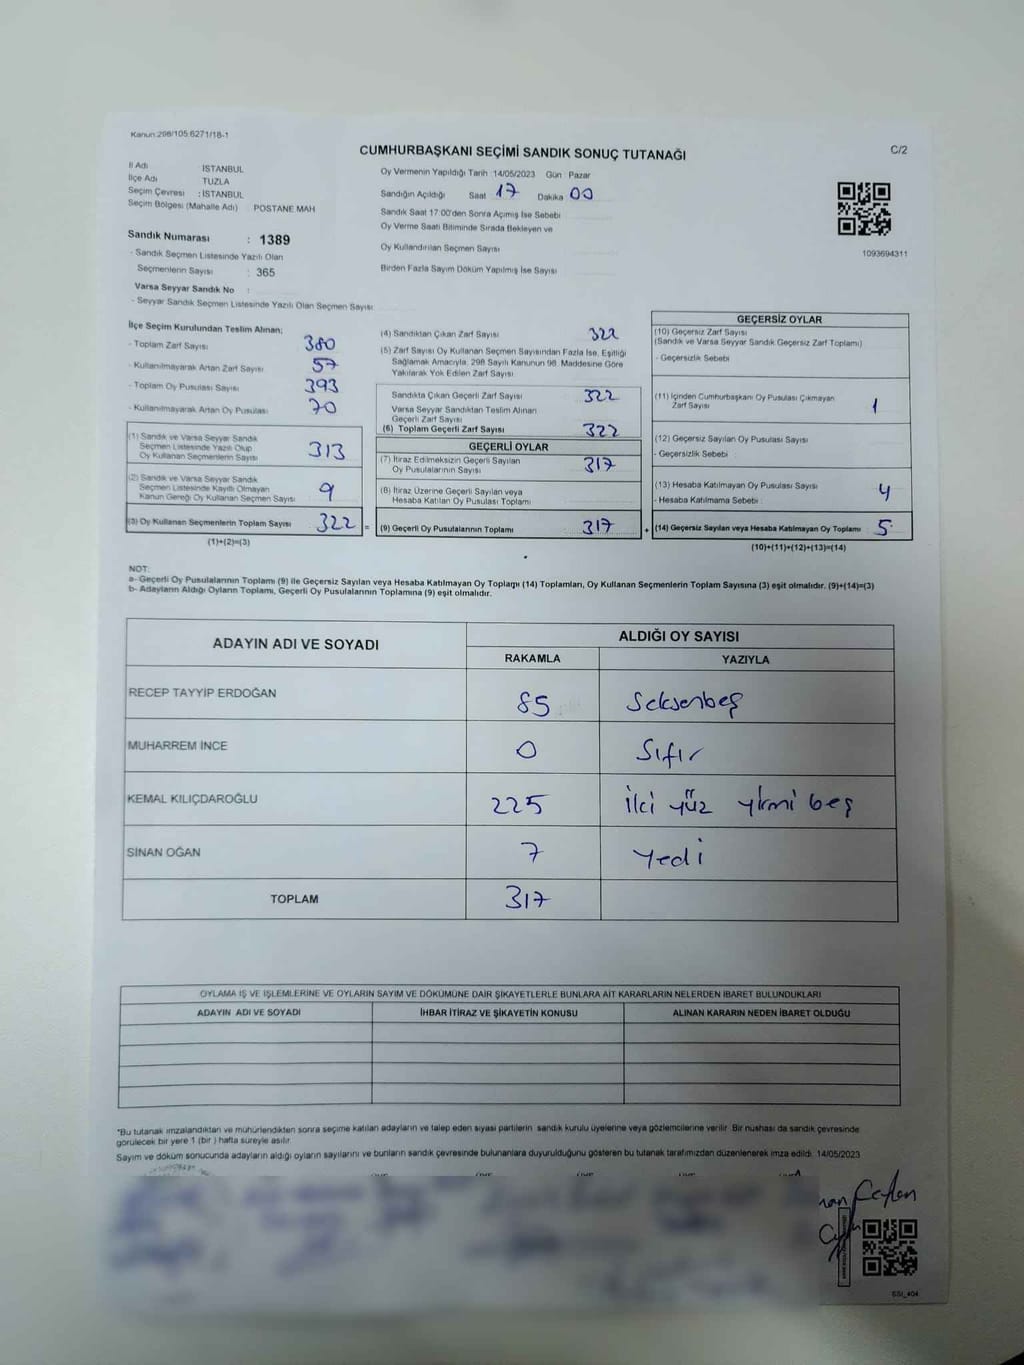 Kanun:298/105;6271/18-1
CUMHURBAŞKANI SEÇİMİ SANDIK SONUÇ TUTANAĞI
C/2
İl Adı İSTANBUL
İlçe Adı TUZLA
Seçim Çevresi : İSTANBUL
Seçim Bölgesi (Mahalle Adı) POSTANE MAH
Sandık Numarası : 1389
- Sandık Seçmen Listesinde Yazılı Olan
Seçmenlerin Sayısı : 365
Varsa Seyyar Sandık No :
- Seyyar Sandık Seçmen Listesinde Yazılı Olan Seçmen Sayısı:
Oy Vermenin Yapıldığı Tarih 14/05/2023 Gün Pazar
Sandığın Açıldığı Saat 17 Dakika 00
Sandık Saat 17:00'den Sonra Açımış İse Sebebi
Oy Verme Saati Bitiminde Sırada Bekleyen ve
Oy Kullandırılan Seçmen Sayısı
Birden Fazla Sayım Döküm Yapılmış İse Sayısı
1093694311
İlçe Seçim Kurulundan Teslim Alınan;
- Toplam Zarf Sayısı 380
- Kullanılmayarak Artan Zarf Sayısı 57
- Toplam Oy Pusulası Sayısı 393
- Kullanılmayarak Artan Oy Pusulası 70
(1) Sandık ve Varsa Seyyar Sandık
Seçmen Listesinde Yazılı Olup
Oy Kullanan Seçmenlerin Sayısı 313
(2) Sandık ve Varsa Seyyar Sandık
Seçmen Listesinde Kayıtlı Olmayan
Kanun Gereği Oy Kullanan Seçmen Sayısı 9
(3) Oy Kullanan Seçmenlerin Toplam Sayısı 322 =
(1)+(2)=(3)
(4) Sandıktan Çıkan Zarf Sayısı 322
(5) Zarf Sayısı Oy Kullanan Seçmen Sayısından Fazla İse, Eşitliği
Sağlamak Amacıyla, 298 Sayılı Kanunun 98. Maddesine Göre
Yakılarak Yok Edilen Zarf Sayısı
Sandıkta Çıkan Geçerli Zarf Sayısı 322
Varsa Seyyar Sandıktan Teslim Alınan
Geçerli Zarf Sayısı
(6) Toplam Geçerli Zarf Sayısı 322
GEÇERLİ OYLAR
(7) İtiraz Edilmeksizin Geçerli Sayılan
Oy Pusulalarının Sayısı 317
(8) İtiraz Üzerine Geçerli Sayılan veya
Hesaba Katılan Oy Pusulası Toplamı
(9) Geçerli Oy Pusulalarının Toplamı 317 +
GEÇERSİZ OYLAR
(10) Geçersiz Zarf Sayısı
(Sandık ve Varsa Seyyar Sandık Geçersiz Zarf Toplamı)
- Geçersizlik Sebebi
(11) İçinden Cumhurbaşkanı Oy Pusulası Çıkmayan
Zarf Sayısı 1
(12) Geçersiz Sayılan Oy Pusulası Sayısı
- Geçersizlik Sebebi :
(13) Hesaba Katılmayan Oy Pusulası Sayısı 4
- Hesaba Katılmama Sebebi :
(14) Geçersiz Sayılan veya Hesaba Katılmayan Oy Toplamı 5
(10)+(11)+(12)+(13)=(14)
NOT:
a- Geçerli Oy Pusulalarının Toplamı (9) ile Geçersiz Sayılan veya Hesaba Katılmayan Oy Toplamı (14) Toplamları, Oy Kullanan Seçmenlerin Toplam Sayısına (3) eşit olmalıdır. (9)+(14)=(3)
b- Adayların Aldığı Oyların Toplamı, Geçerli Oy Pusulalarının Toplamına (9) eşit olmalıdır.
ADAYIN ADI VE SOYADI
ALDIĞI OY SAYISI
RAKAMLA YAZIYLA
RECEP TAYYİP ERDOĞAN 85 Seksenbeş
MUHARREM İNCE 0 Sıfır
KEMAL KILIÇDAROĞLU 225 iki yüz yirmi beş
SİNAN OĞAN 7 yedi
TOPLAM 317
OYLAMA İŞ VE İŞLEMLERİNE VE OYLARIN SAYIM VE DÖKÜMÜNE DAİR ŞİKAYETLERLE BUNLARA AİT KARARLARIN NELERDEN İBARET BULUNDUKLARI
ADAYIN ADI VE SOYADI İHBAR İTİRAZ VE ŞİKAYETİN KONUSU ALINAN KARARIN NEDEN İBARET OLDUĞU
*Bu tutanak imzalandıktan ve mühürlendikten sonra seçime katılan adayların ve talep eden siyasi partilerin sandık kurulu üyelerine veya gözlemcilerine verilir. Bir nüshası da sandık çevresinde
görülecek bir yere 1 (bir ) hafta süreyle asılır.
Sayım ve döküm sonucunda adayların aldığı oyların sayılarını ve bunların sandık çevresinde bulunanlara duyurulduğunu gösteren bu tutanak tarafımızdan düzenlenerek imza edildi. 14/05/2023
Ceylan